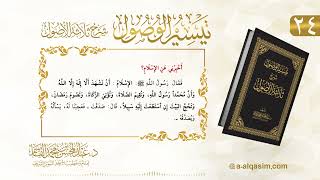 تيسير الوصول شرح ثلاثة الأصول
٢٤
أَخْبِرْنِي عَنِ الإِسْلَامِ؟
فَقَالَ رَسُولُ اللَّهِ ﷺ: الإِسْلَامُ: أَنْ تَشْهَدَ أَلَّا إِلَهَ إِلَّا اللَّهُ
وَأَنَّ مُحَمَّدًا رَسُولُ اللَّهِ، وَتُقِيمَ الصَّلَاةَ، وَتُؤْتِيَ الزَّكَاةَ، وَتَصُومَ رَمَضَانَ،
وَتَحُجَّ البَيْتَ إِنِ اسْتَطَعْتَ إِلَيْهِ سَبِيلًا. قَالَ: صَدَقْتَ، فَعَجِبْنَا لَهُ، يَسْأَلُهُ
وَيُصَدِّقُهُ
تيسير الوصول
شرح
ثلاثة الأصول
د. عبد المحسن بن محمد القاسم
a-alqasim.com